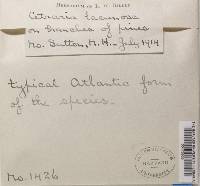 HERBARIUM OF L. W. RIDDLE
Cetraria lacunosa
on branches of pines
No. Sutton, N.H. - July 1914
typical Atlantic form
of the species.
No. 1426
HARVARD